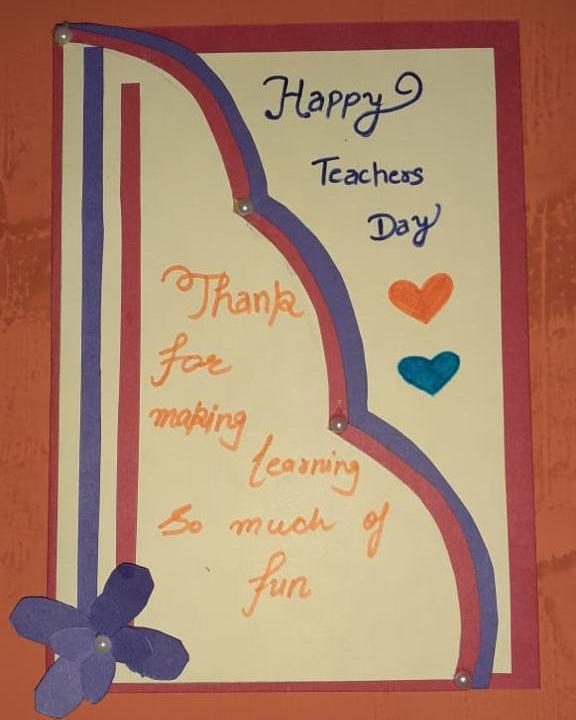 Happy
Teachers
Day
Thank
for
making
learning
so much of
fun